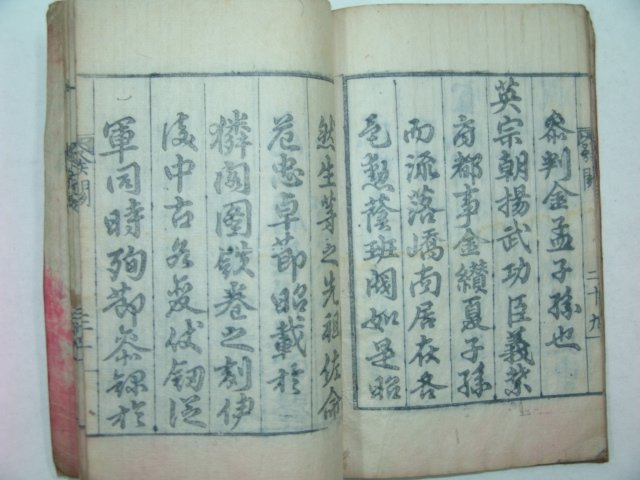 參判金孟子孫也
英宗朝揚武功臣義禁
府都事金纘夏子孫
而流落嶠南居在各
邑勳蔭班閥如是昭
二十九
然生等之先祖佐命
危忠卓節昭載於
獜閣圖鐵卷之刻伊
後中古名
軍同時殉節
於